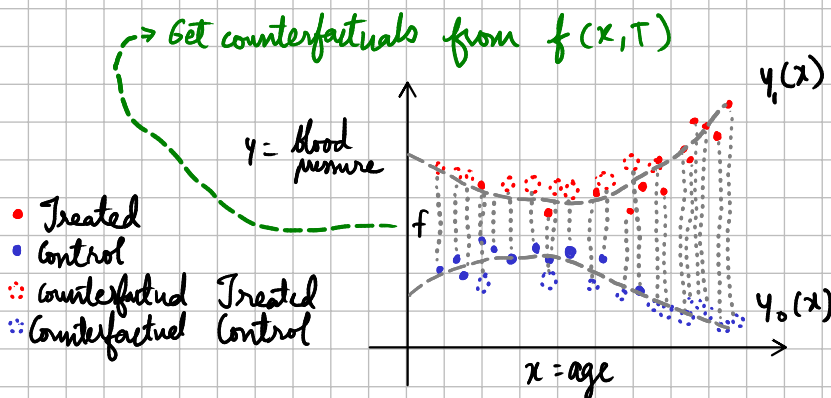 Get counterfactuals from f(x,T)
y₁(x)
y = blood
pressure
f
Treated
Control
Counterfactual Treated
Counterfactual Control
y₀(x)
x = age